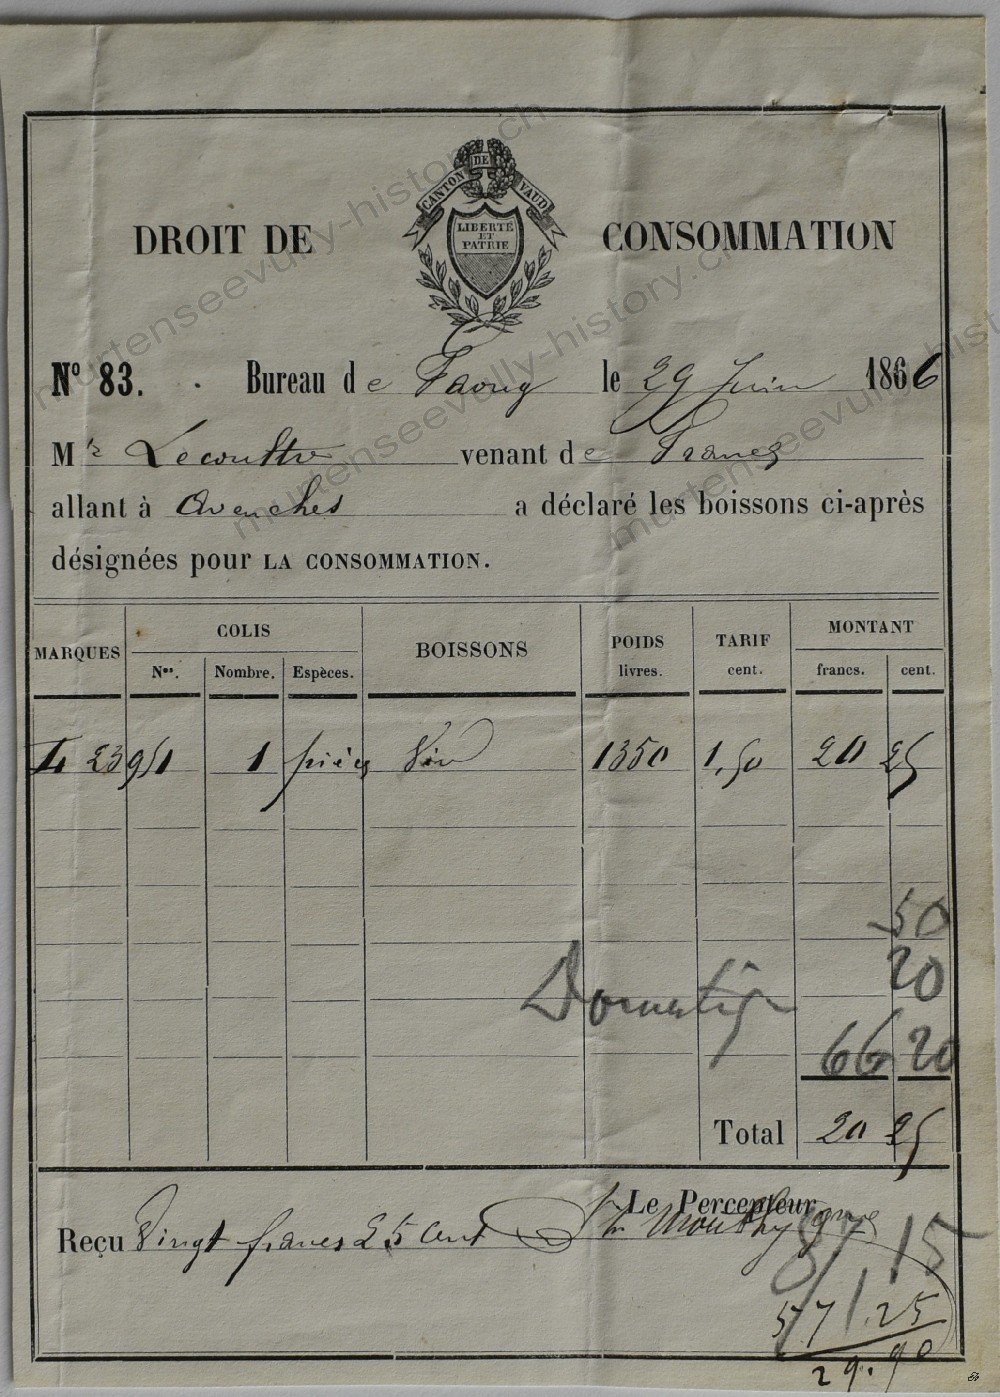 CANTON DE VAUD
LIBERTE
ET
PATRIE
DROIT DE CONSOMMATION
Nº 83. Bureau de Faoug le 29 Juin 1866
Mr Lecoultre venant de France
allant à Avenches a déclaré les boissons ci-après
désignées pour LA CONSOMMATION.
MARQUES COLIS BOISSONS POIDS TARIF MONTANT
Nos. Nombre. Espèces. livres. cent. francs. cent.
23951 1 pièce Vin 1350 1,50 20 25
50
20
66 20
Total 20 25
Le Percepteur
Reçu Vingt francs 25 cent
87 15
57.25
29.90
murtenseevully-history.ch
murtenseevully-history.ch
murtenseevully-history.ch